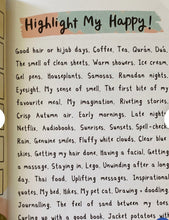 Highlight My Happy!
Good hair or hijab days. Coffee, Tea, Qurán, Du'a,
The smell of clean sheets, Warm showers, Ice cream,
Gel pens, Houseplants, Samosas, Ramadan nights,
Eyesight, My sense of smell, The first bite of my
favourite meal, My imagination, Riveting stories,
Crisp Autumn air, Early mornings, Late nights,
Netflix, Audiobooks, Sunrises, Sunsets, Spell-check,
Rain, Genuine smiles, Fluffy white clouds, Clear blue
skies, Getting my hair done, Having a facial, Getting
a massage, Staying in, Lego, Unwinding after a long
day, Thai food, Uplifting messages, Inspirational
quotes, My bed, Hikes, My pet cat, Drawing + doodling
Journalling, The feel of sand between my toes
Curling up with a good book, Jacket potatoes with